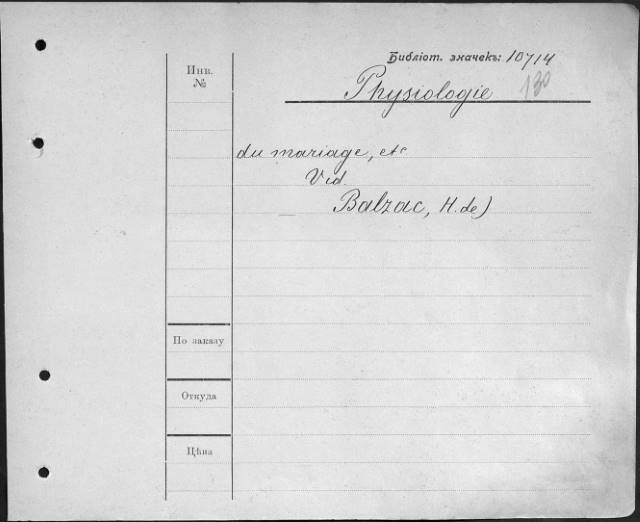 Библіот. значекъ: 10714
Инв.
№
Physiologie 130
du mariage, etc
Vid.
Balzac, H. de)
По заказу
Откуда
Цѣна